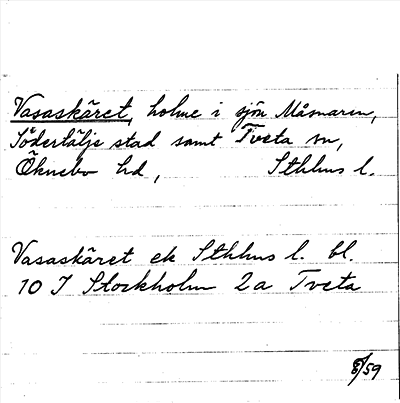 Vasaskäret, holme i sjön Måsnaren,
Södertälje stad samt Tveta sn,
Öknebo hd, Sthlms l.
Vasaskäret ek Sthlms l. bl.
10 J Stockholm 2a Tveta
8/59